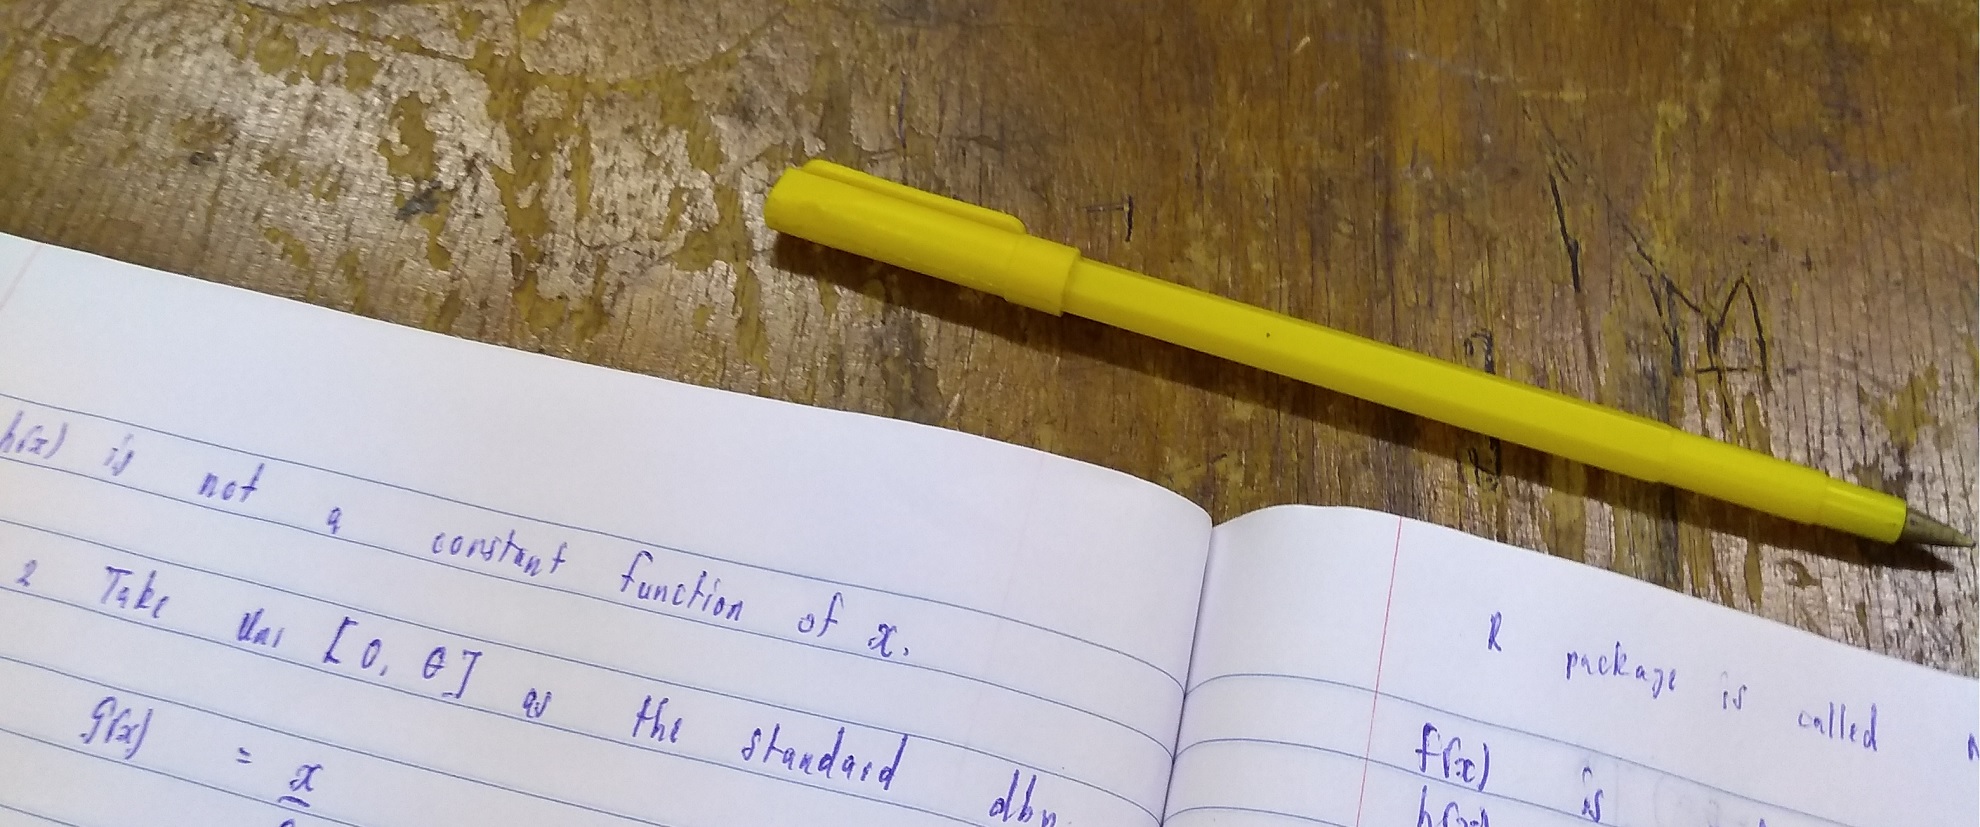 h(x) is not a constant function of x.
2 Take Uni [0, θ] as the standard dbn.
G(x) = x
R package is called
f(x) is
h(x)